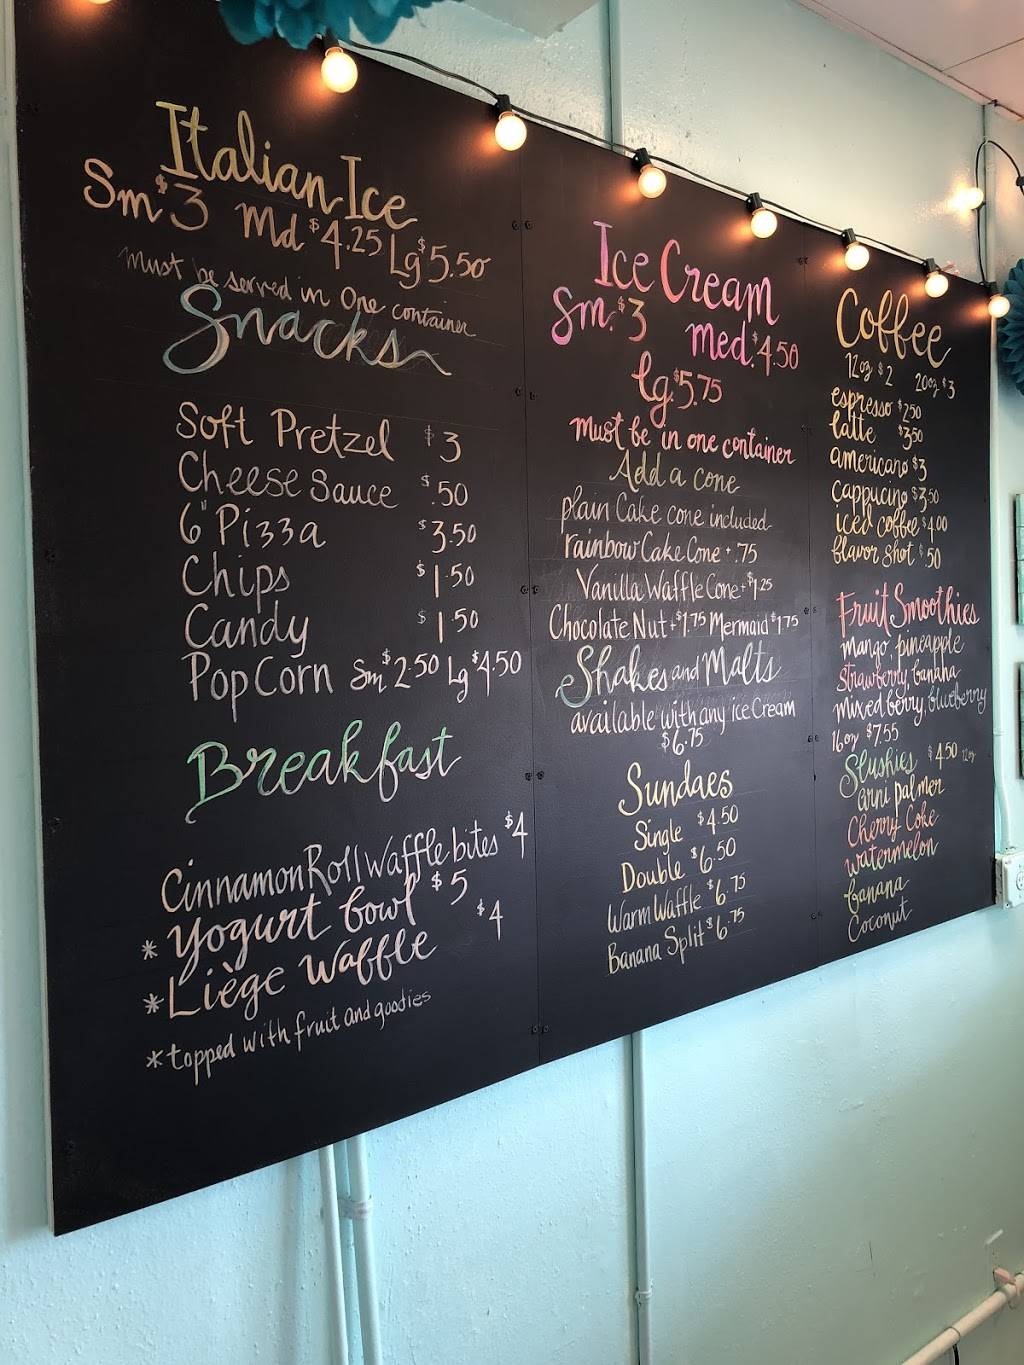 Italian Ice
Sm $3 Md $4.25 Lg $5.50
must be served in One container
Snacks
Soft Pretzel $3
Cheese Sauce $.50
6" Pizza $3.50
Chips $1.50
Candy $1.50
PopCorn Sm $2.50 Lg $4.50
Breakfast
Cinnamon Roll Waffle bites $4
* Yogurt bowl $5
* Liège Waffle $4
* topped with fruit and goodies
Ice Cream
Sm. $3 med. $4.50
lg. $5.75
must be in one container
Add a cone
plain Cake cone included
rainbow Cake Cone + .75
Vanilla Waffle Cone + $1.25
Chocolate Nut + $1.75 Mermaid $1.75
Shakes and Malts
available with any ice Cream
$6.75
Sundaes
Single $4.50
Double $6.50
Warm Waffle $6.75
Banana Split $6.75
Coffee
12oz $2 20oz $3
espresso $2.50
latte $3.50
americano $3
cappucino $3.50
iced coffee $4.00
flavor shot $.50
Fruit Smoothies
mango, pineapple
strawberry, banana
mixed berry, blueberry
16oz $7.55
Slushies $4.50 12oz
arni palmer
Cherry Coke
watermelon
banana
Coconut